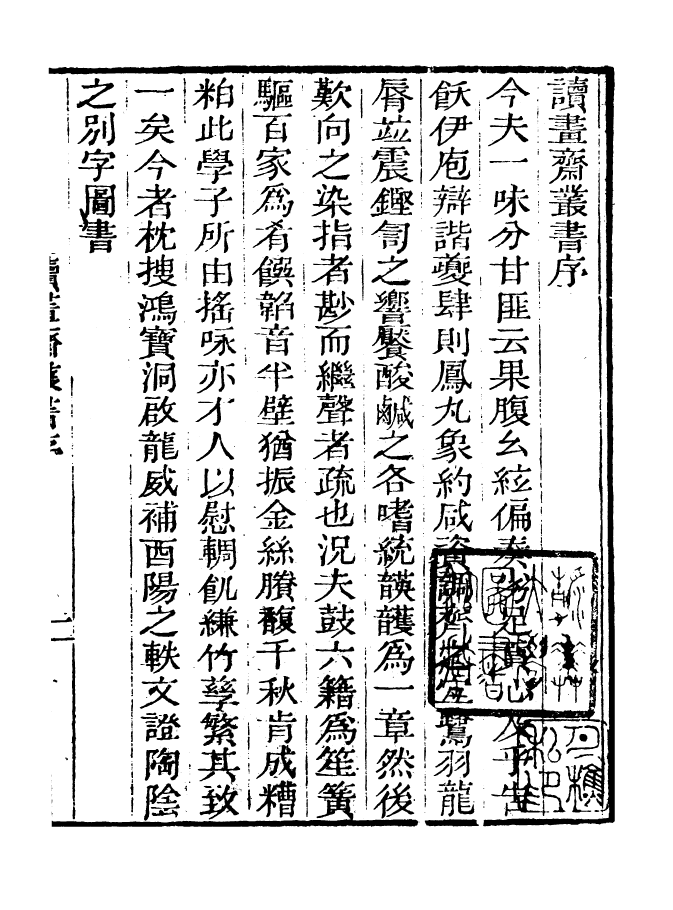 讀畫齋叢書序
今夫一味分甘匪云果腹幺絃偏奏足心乎
飫伊庖辯諧夔肆則鳳丸象約咸資調鷺羽龍
脣竝震鏗訇之響饜酸鹹之各嗜統韺頀爲一章然後
歎向之染指者尟而繼聲者疏也況夫鼓六籍爲笙簧
驅百家爲肴饌韜音半壁猶振金絲賸馥千秋肯成糟
粕此學子所由搖啄亦才人以慰輖飢縑竹孳繁其致
一矣今者枕搜鴻寶洞啟龍威補酉陽之軼文證陶陰
之別字圖書
讀畫齋叢書序
一